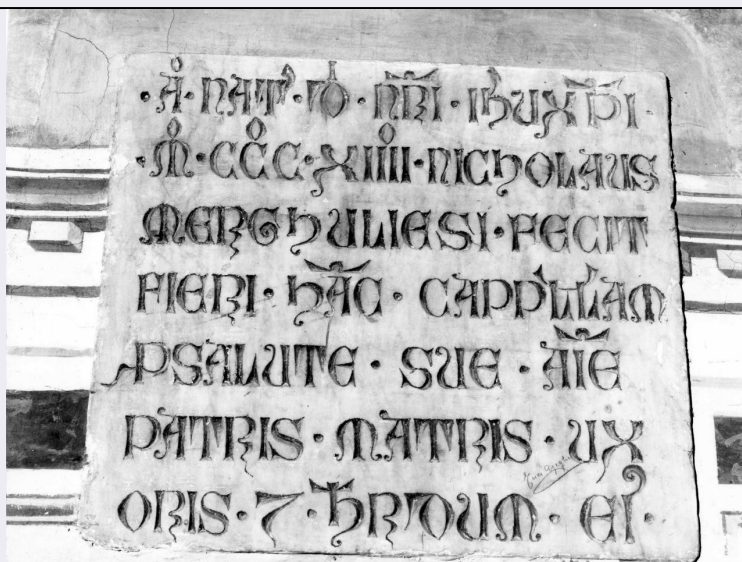 ·Å·NAT'·DO̊·NR̄I·IHUXP̄I·
·M̊·CC̊C·XIIII̊·NICHOLAUS
MERGHULIESI·FECIT
FIERI·HĀC·CAPP'LL'AM
PSALUTE·SUE·AĪE
PATRIS·MATRIS·UX
ORIS·7·HR̄DUM·EI'·